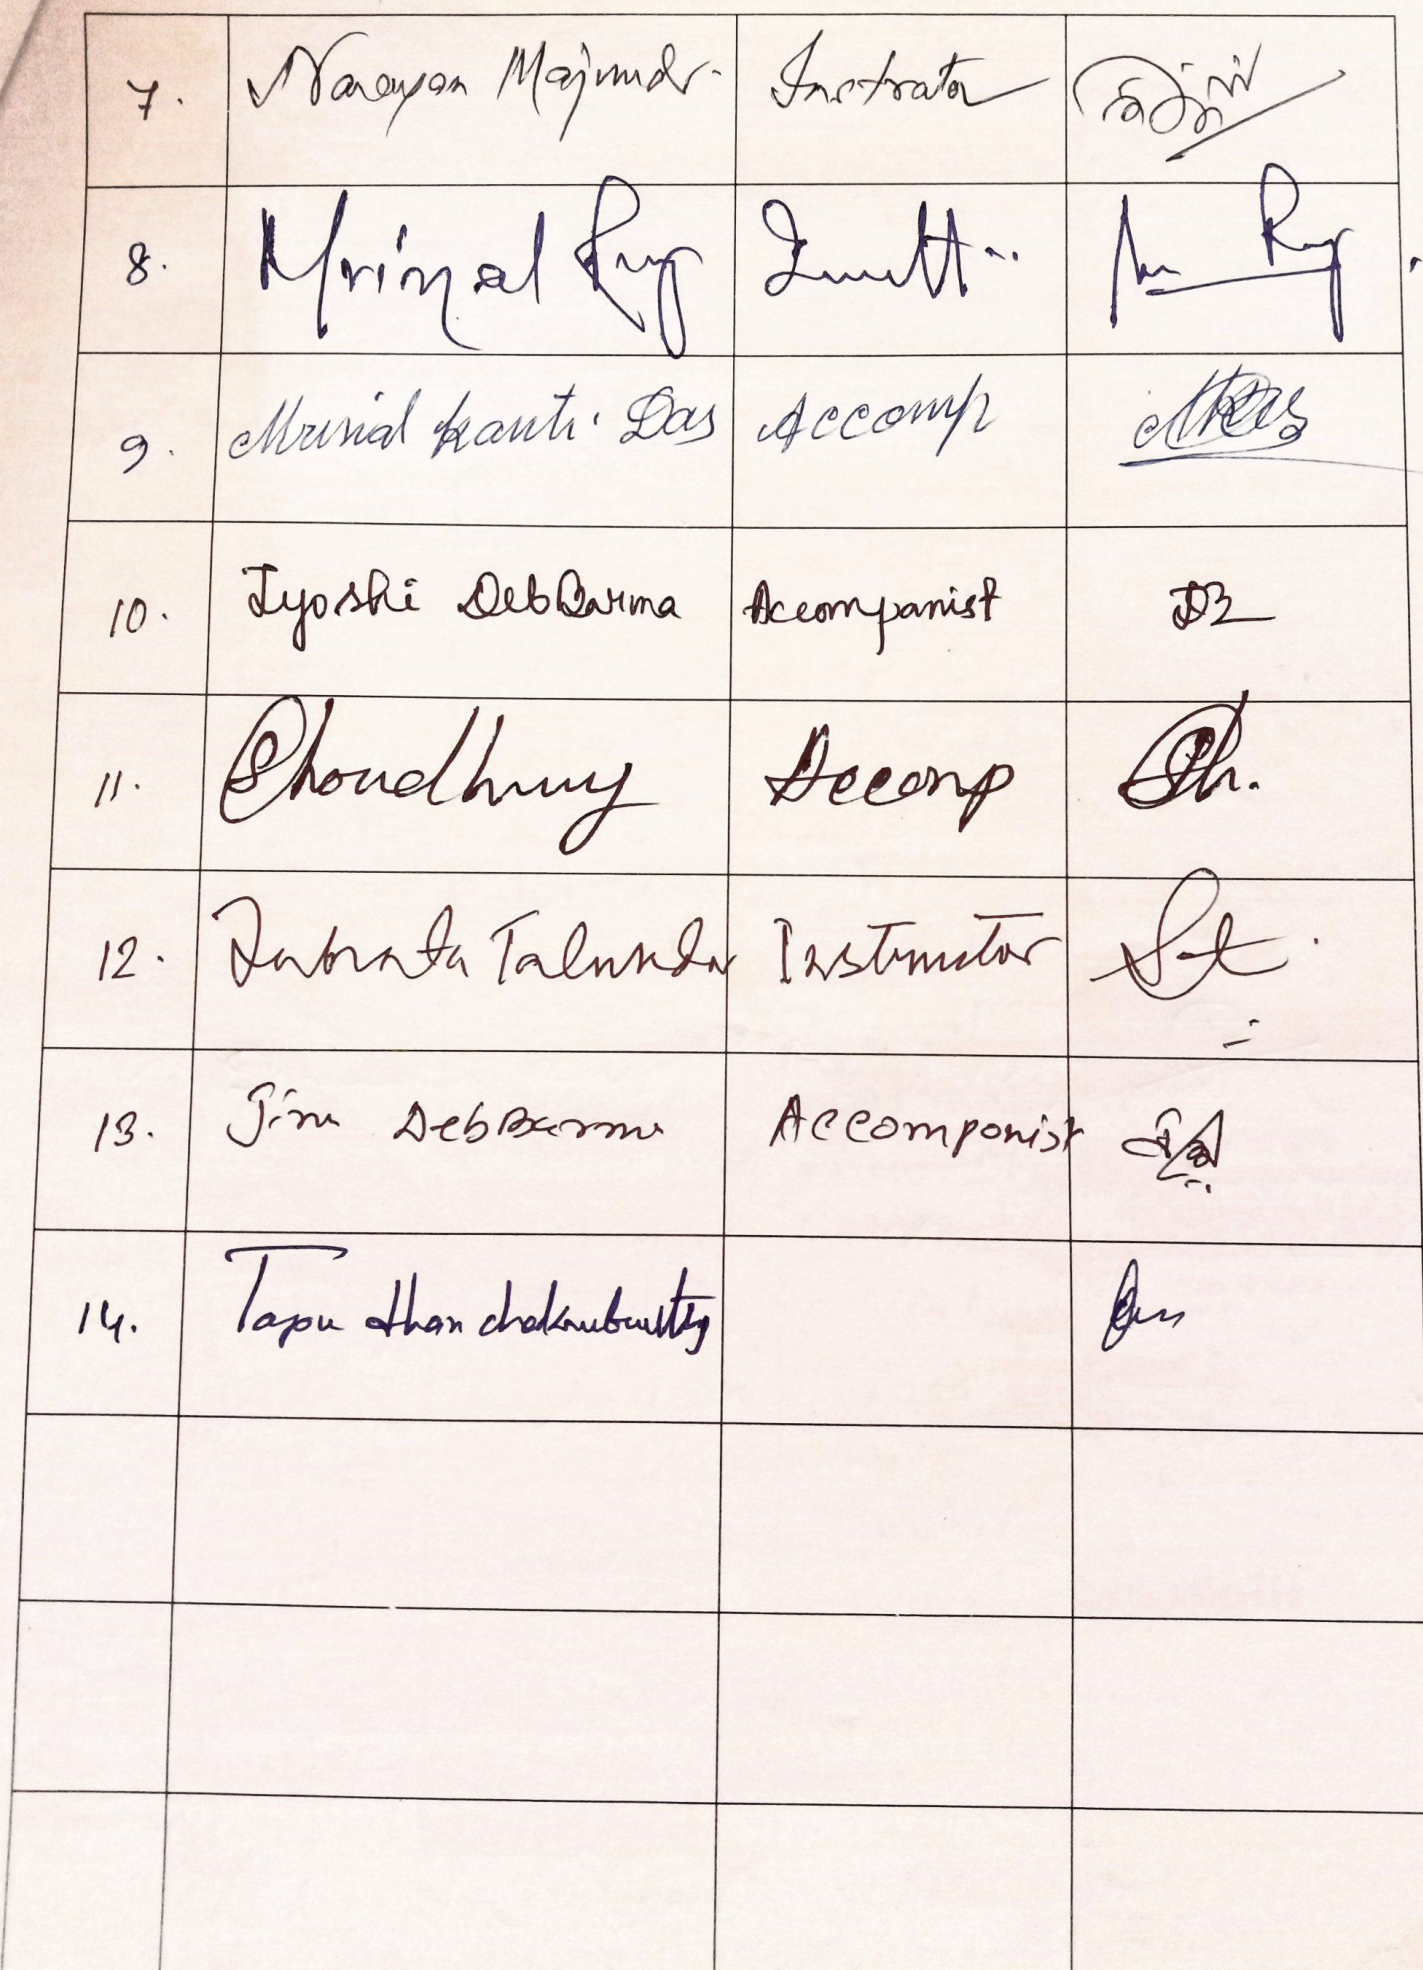 7. Narayan Majumdr. Instrator
8. Mrinal Roy
9. Mrinal Kanti Das Accomp
10. Jyoshi DebBarma Accompanist
11. Choudhury Accomp
12. Subrata Talukdar Instructor
13. DebBarma Accomponist
14. Tapu dhan chakraburtty